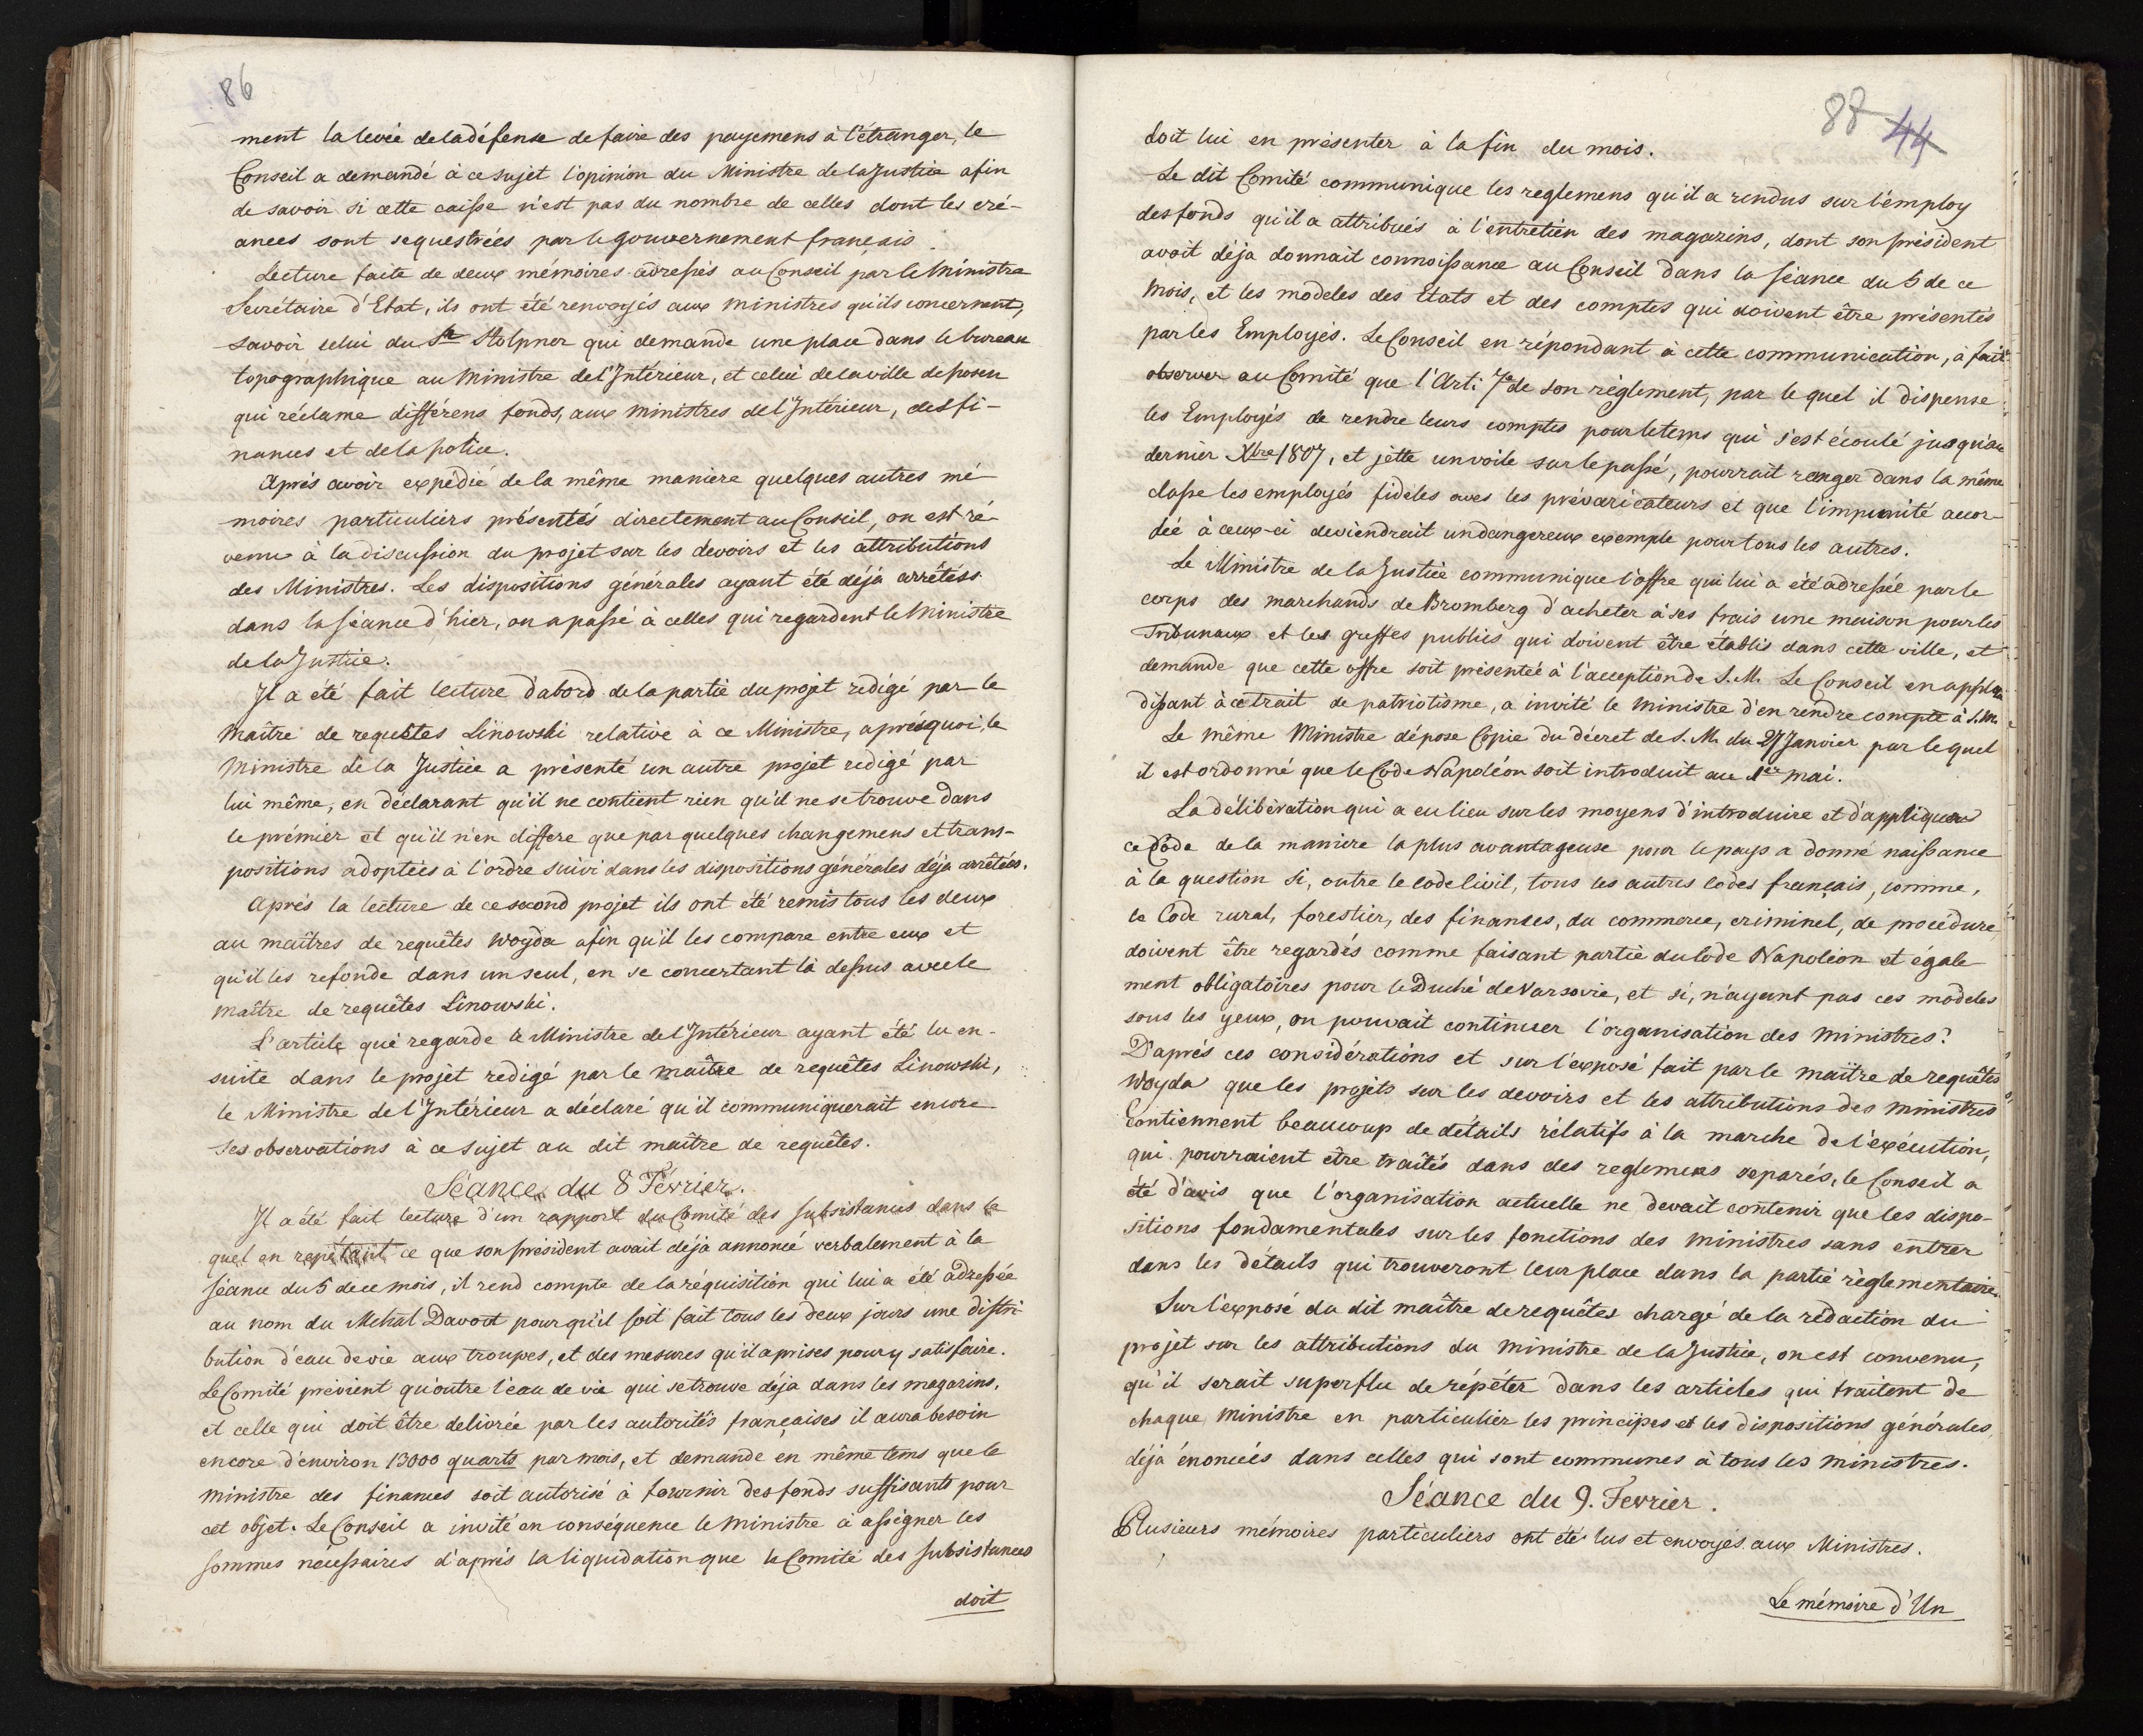 86
ment la levée de la défense de faire des payemens à l'étranger, le
Conseil a demandé à ce sujet l'opinion du Ministre de la Justice afin
de savoir si cette caisse n'est pas du nombre de celles dont les cré-
ances sont sequestrées par le gouvernement français.
Lecture faite de deux mémoires adressés au Conseil par le Ministre
Secrétaire d'Etat, ils ont été renvoyés aux ministres qu'ils concernent,
savoir celui du Sr Stolpner qui demande une place dans le bureau
topographique au Ministre de l'Intérieur, et celui de la ville de posen
qui réclame différens fonds, aux ministres de l'Intérieur, des fi-
nances et de la police.
Aprés avoir expédié de la même maniere quelques autres mé-
moires particuliers présentés directement au Conseil, on est ré-
venu à la discussion du projet sur les devoirs et les attributions
des Ministres. Les dispositions générales ayant été déjà arrêtéss
dans la séance d'hier, on a passé à celles qui regardent le Ministre
de la Justice.
Il a été fait lecture d'abord de la partie du projet redigé par le
Maître de requêtes Linowski relative à ce Ministre, aprés quoi, le
Ministre de la Justice a présenté un autre projet redigé par
lui même, en déclarant qu'il ne contient rien qu'il ne se trouve dans
le prémier et qu'il n'en differe que par quelques changemens et trans-
positions adoptées à l'ordre suivi dans les dispositions générales déja arrêtées.
Aprés la lecture de ce second projet ils ont été remis tous les deux
au maîtres de requêtes Woyda afin qu'il les compare entre eux et
qu'il les refonde dans un seul, en se concertant là dessus avec le
maître de requêtes Linowski.
L'article qui regarde le Ministre de l'Intérieur ayant été lu en-
suite dans le projet redigé par le maître de requêtes Linowski,
le Ministre de l'Intérieur a déclaré qu'il communiquerait encore
ses observations à ce sujet au dit maître de requêtes.
Séance du 8 Février.
Il a été fait lecture d'un rapport du Comité des subsistances dans le
quel en repétant ce que son président avait déja annoncé verbalement à la
séance du 5 de ce mois, il rend compte de la réquisition qui lui a été adressée
au nom du Mchal Davout pour qu'il soit fait tous les deux jours une distri
bution d'eau de vie aux troupes, et des mesures qu'il a prises pour y satisfaire.
Le Comité prévient qu'outre l'eau de vie qui se trouve déja dans les magazins,
et celle qui doit être delivrée par les autorités françaises il aura besoin
encore d'environ 13000 quarts par mois, et demande en même tems que le
Ministre des finances soit autorisé à fournir des fonds suffisants pour
cet objet. Le Conseil a invité en conséquence le ministre à assigner les
sommes nécessaires d'aprés la liquidation que le Comité des subsistances
doit
87 44
doit lui en présenter à la fin du mois.
Le dit Comité communique les reglemens qu'il a rendus sur l'employ
des fonds qu'il a attribués à l'entretien des magazins, dont son président
avoit déja donnait connoissance au Conseil dans la séance du 5 de ce
mois, et les modeles des Etats et des comptes qui doivent être présentés
par les Employés. Le Conseil en répondant à cette communication, à fait
observer au Comité que l'Art: 7e de son règlement, par le quel il dispense
les Employés de rendre leurs comptes pour le tems qui s'est écoulé jusqu'au
dernier Xbre 1807, et jètte un voile sur le passé, pourrait ranger dans la même
classe les employés fidéles aves les prévaricateurs et que l'impunité accor-
dée à ceux-ci deviendrait un dangereux exemple pour tous les autres.
Le Ministre de la Justice communique l'offre qui lui a été adressée par le
corps des marchands de Bromberg d'acheter à ses frais une maison pour les
Tribunaux et les greffes publics qui doivent être établis dans cette ville, et
demande que cette offre soit présentée à l'acceptionde S. M. Le Conseil en applau
dissant à ce trait de patriotisme, a invité le ministre d'en rendre compte à S. M.
Le même Ministre dépose Copie du décret de S. M. du 27 Janvier par lequel
il est ordonné que le Code Napoléon soit introduit au 1er mai.
La délibération qui a eu lieu sur les moyens d'introduire et d'appliquer
ce Code de la maniere la plus avantageuse pour le pays a donné naissance
à la question si, outre le code Civil, tous les autres Codes français, comme,
le Code rural, forestier, des finances, du commerce, criminel, de procédure,
doivent être regardés comme faisant partie du Code Napoléon et égale
ment obligatoires pour le Duché de Varsovie, et si, n'ayant pas ces modeles
sous les yeux, on pouvait continuer l'organisation des ministres?
D'aprés ces considérations et sur l'exposé fait par le maître de requêtes
Woyda que les projets sur les devoirs et les attributions des ministres
Contiennent beaucoup de détails rélatifs à la marche de l'exécution,
qui pourraient être traités dans des reglemens separés, le Conseil a
été d'avis que l'organisation actuelle ne devait contenir que les dispo-
sitions fondamentales sur les fonctions des ministres sans entrer
dans les détails qui trouveront leur place dans la partie règlementaire.
Sur l'exposé du dit maître de requêtes chargé de la rédaction du
projet sur les attributions du ministre de la Justice, on est convenu,
qu'il serait superflu de répéter dans les articles qui traitent de
chaque ministre en particulier les principes et les dispositions générales,
déjà énoncés dans celles qui sont communes à tous les ministres.
Séance du 9. Fevrier.
Plusieurs mémoires particuliers ont été lus et envoyés aux Ministres.
Le mémoire d'Un